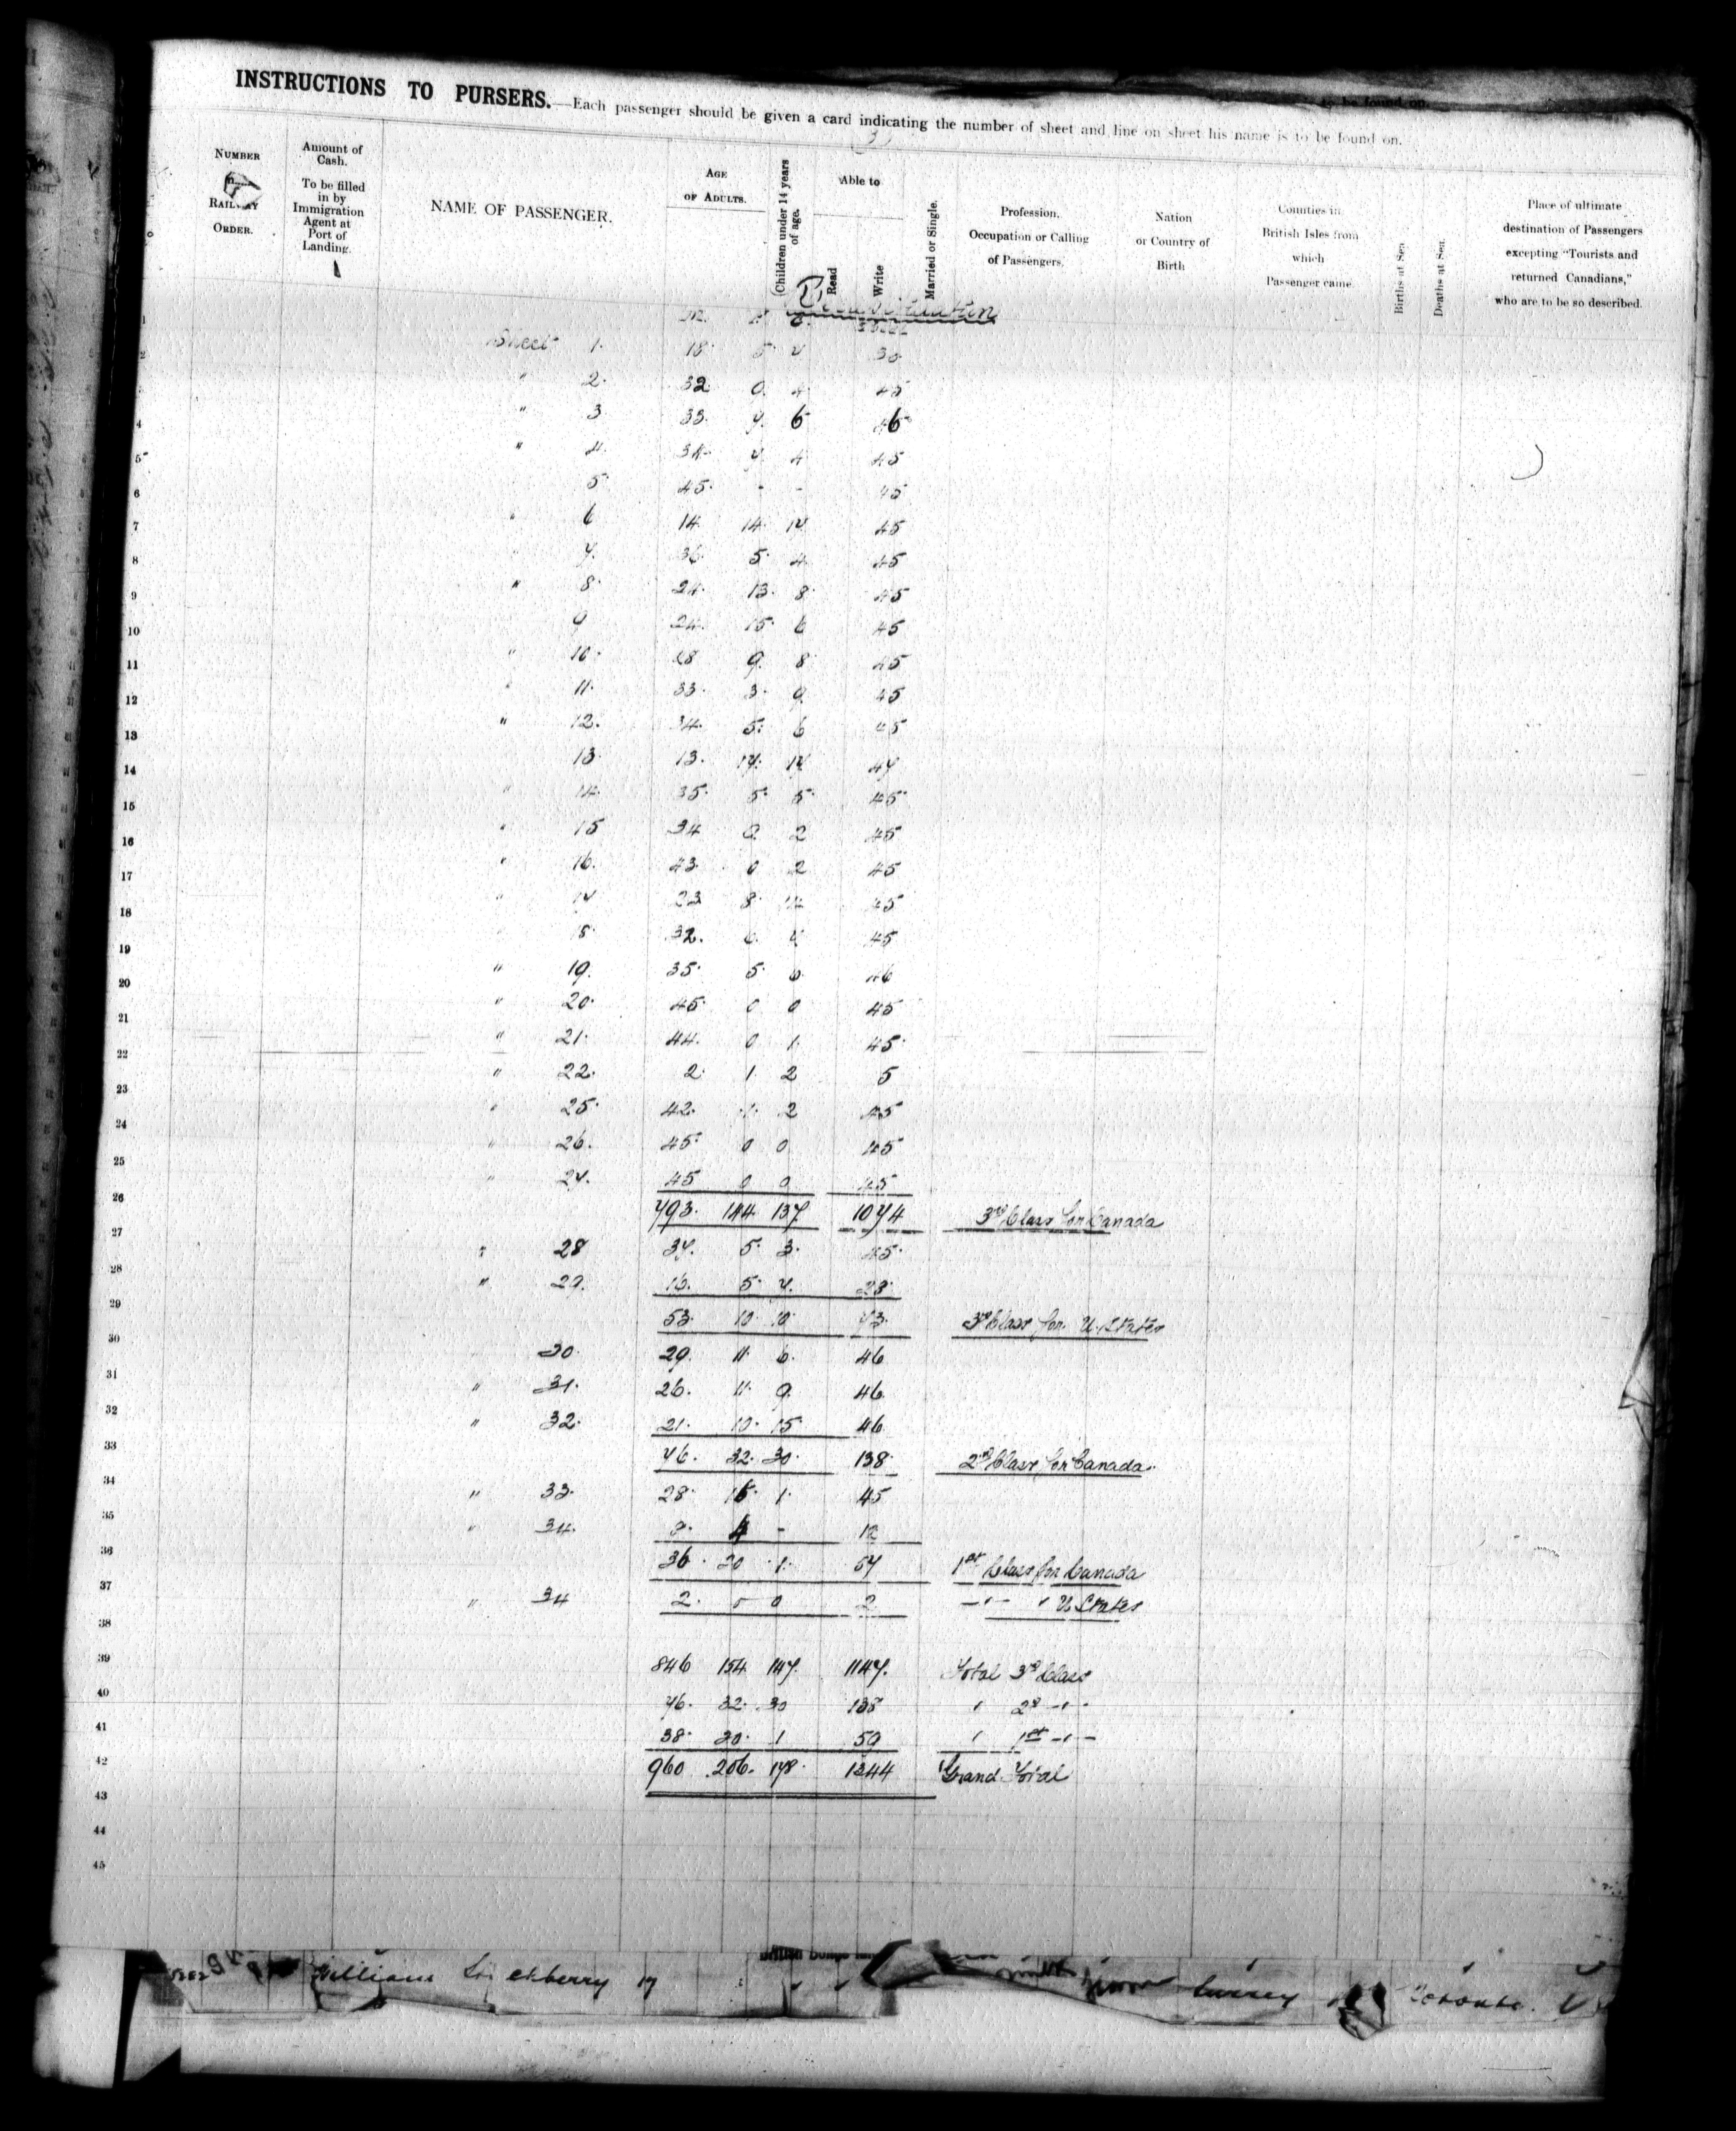 INSTRUCTIONS TO PURSERS.—Each passenger should be given a card indicating the number of sheet and line on sheet his name is to be found on.
to be found on.
3
NUMBER
RAILWAY
ORDER.
Amount of Cash.
To be filled in by Immigration Agent at Port of Landing.
NAME OF PASSENGER.
AGE OF ADULTS.
Children under 14 years of age.
Able to
Read
Write
Married or Single.
Profession, Occupation or Calling of Passengers.
Nation or Country of Birth
Counties in British Isles from which Passenger came.
Births at Sea
Deaths at Sea.
Place of ultimate destination of Passengers excepting "Tourists and returned Canadians," who are to be so described.
Recapitulation
1
2 Sheet 1. 18 5 7 30
3 " 2. 32 9 4 45
4 " 3 33 7 6 46
5 " 4. 34 7 4 45
6 5 45 - - 45
7 " 6 14 14 17 45
8 7. 36 5 4 45
9 " 8 24 13 8 45
10 9 24 15 6 45
11 " 10 28 9 8 45
12 " 11. 33 3 9 45
13 " 12. 34 5 6 45
14 13 13 17 17 47
15 " 14 35 5 5 45
16 " 15 34 9 2 45
17 " 16. 43 0 2 45
18 " 17 23 8 14 45
19 18 32. 6 7 45
20 " 19. 35 5 6 46
21 " 20 45 0 0 45
22 " 21. 44. 0 1. 45
23 " 22. 2 1. 2 5
24 " 25 42. 1 2 45
25 " 26. 45 0 0 45
26 " 27. 45 0 0 45
27 793. 144 137 1074 3rd Class for Canada
28 " 28 37. 5 3. 45
29 " 29. 16. 5 7. 28
30 53 10 10 73 3rd Class for U. States
31 30 29. 11 6. 46
32 " 31. 26. 11 9. 46
33 " 32. 21. 10 15 46
34 76. 32. 30 138 2nd Class for Canada.
35 " 33. 28 16 1. 45
36 " 34. 8. 4 - 12
37 36. 20 1. 57 1st Class for Canada
38 " 34 2. 0 0 2 " " U. States
39
40 846 154 147. 1147. Total 3rd Class
41 76. 32. 30 138 " 2nd "
42 38. 20. 1 59 " 1st "
43 960 206. 178. 1344 Grand Total
44
45
William
ckberry 17
Surrey
Toronto.